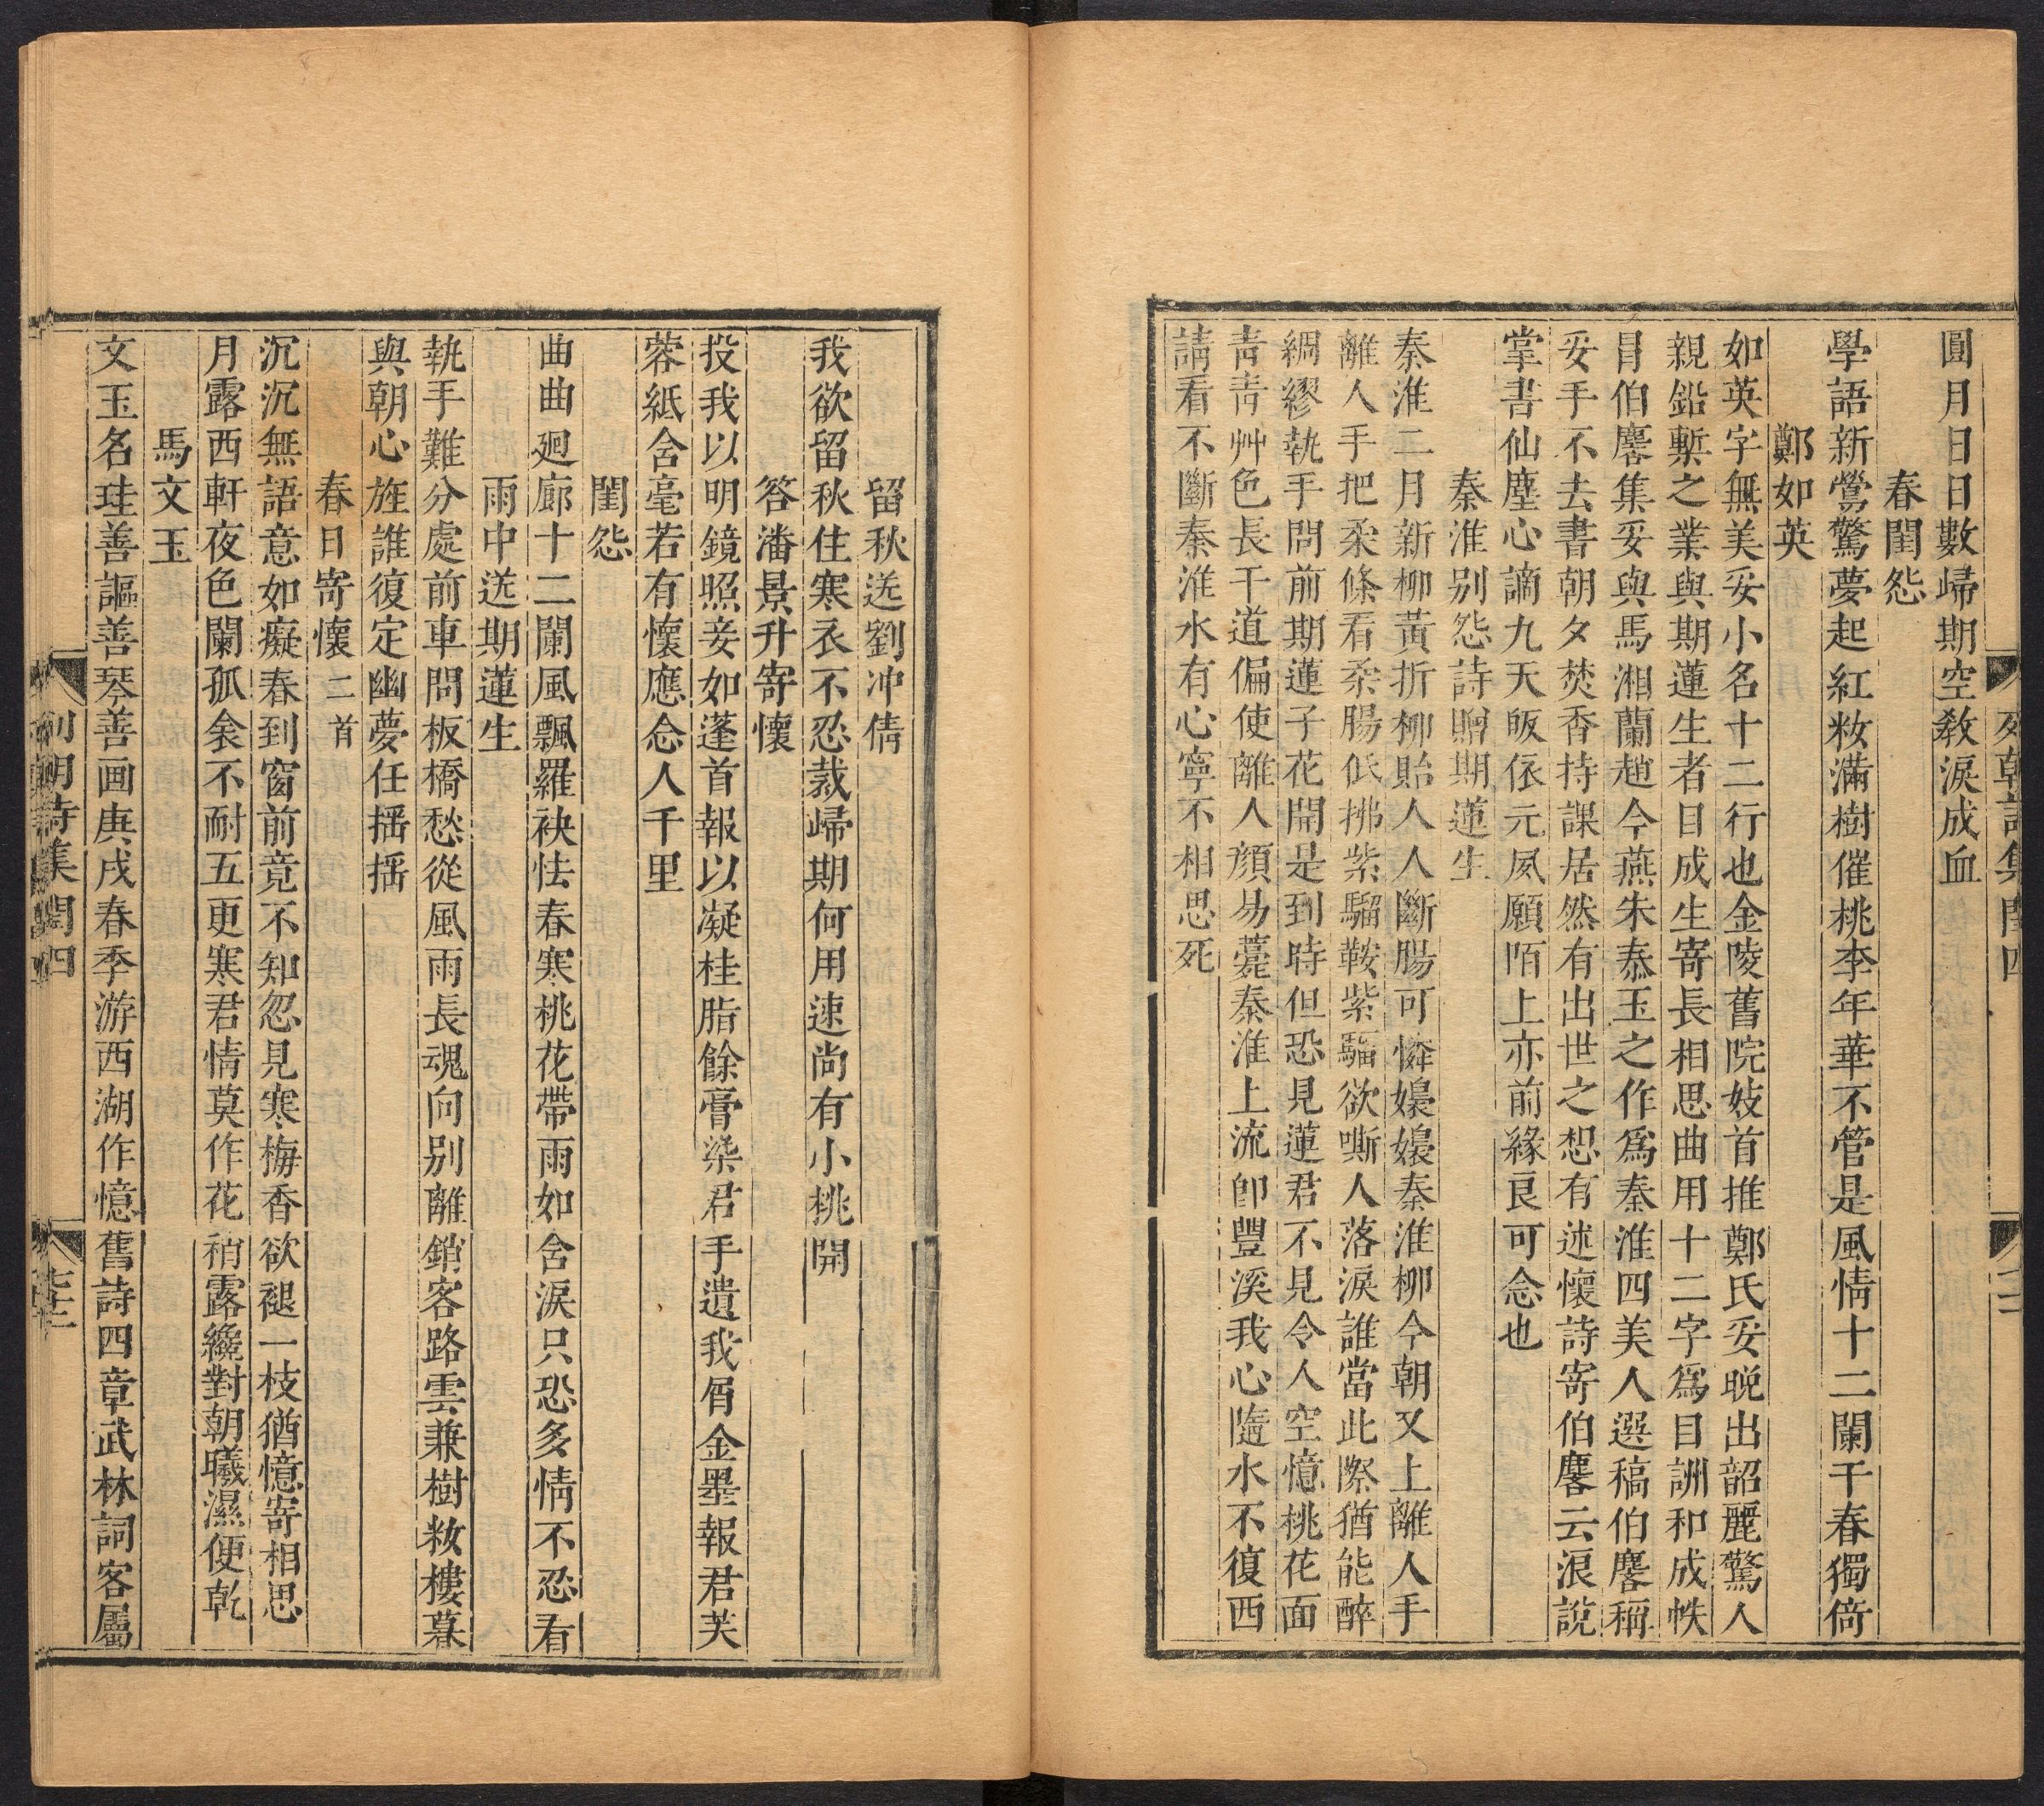 圓月日日數歸期空敎淚成血
春閨怨
學語新鶯驚夢起紅粧滿樹催桃李年華不管是風情十二闌干春獨倚
鄭如英
如英字無美妥小名十二行也金陵舊院妓首推鄭氏妥晚出韶麗驚人
親鉛槧之業與期蓮生者目成生寄長相思曲用十二字爲目詶和成帙
冒伯麐集妥與馬湘蘭趙今燕朱泰玉之作爲秦淮四美人選稿伯麐稱
妥手不去書朝夕焚香持課居然有出世之想有述懷詩寄伯麐云浪說
掌書仙塵心謫九天皈依元夙願陌上亦前緣良可念也
秦淮别怨詩贈期蓮生
秦淮二月新柳黃折柳貽人人斷腸可憐嬝嬝秦淮柳今朝又上離人手
離人手把柔條看柔腸低拂紫騮鞍紫騮欲嘶人落淚誰當此際猶能醉
綢繆執手問前期蓮子花開是到時但恐見蓮君不見令人空憶桃花面
靑靑艸色長干道偏使離人顏易薧秦淮上流卽豐溪我心隨水不復西
請看不斷秦淮水有心寧不相思死
留秋送劉冲倩
我欲留秋住寒衣不忍裁歸期何用速尚有小桃開
答潘景升寄懷
投我以明鏡照妾如蓬首報以凝桂脂餘膏染君手遺我屑金墨報君芙
蓉紙含毫若有懷應念人千里
閨怨
曲曲廻廊十二闌風飄羅袂怯春寒桃花帶雨如含淚只恐多情不忍看
雨中送期蓮生
執手難分處前車問板橋愁從風雨長魂向别離銷客路雲兼樹粧樓暮
與朝心旌誰復定幽夢任揺揺
春日寄懷二首
沉沉無語意如癡春到窗前竟不知忽見寒梅香欲褪一枝猶憶寄相思
月露西軒夜色闌孤衾不耐五更寒君情莫作花稍露纔對朝曦濕便乾
馬文玉
文玉名珪善謳善琴善画庚戌春季游西湖作憶舊詩四章武林詞客屬
列朝詩集閏四